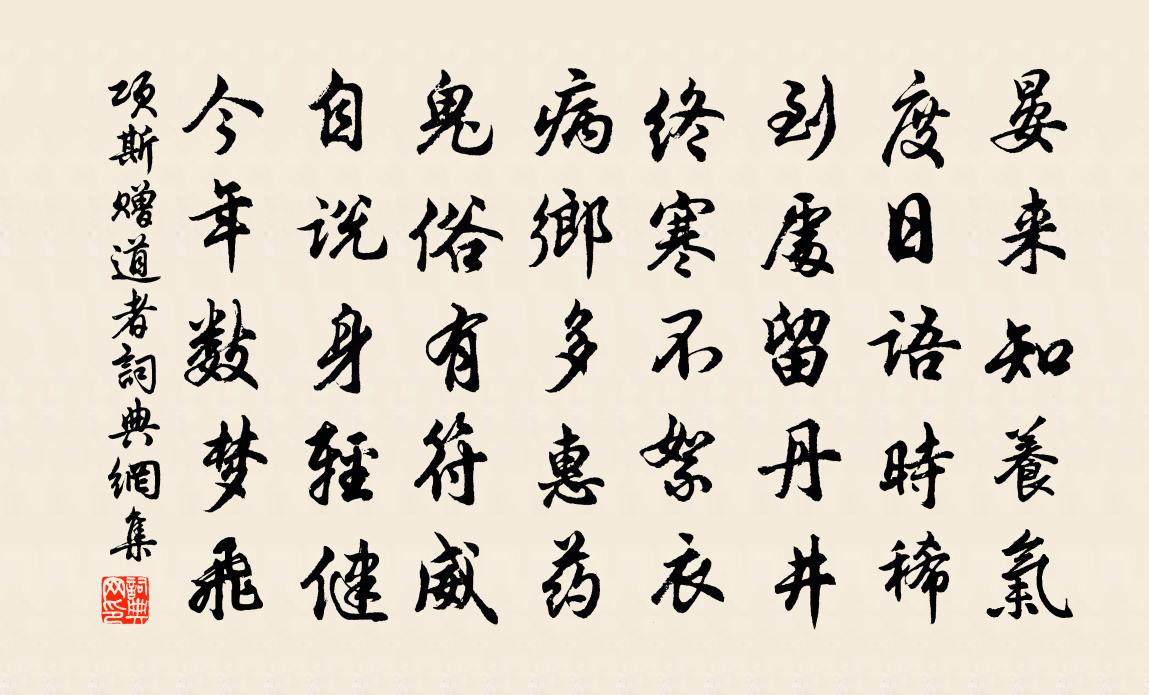 晏来知養氣
度日語時稀
到處留丹井
終寒不絮衣
病鄉多惠药
鬼俗有符威
自说身輕健
今年数梦飛
项斯赠道者詞典網集
詞典网印